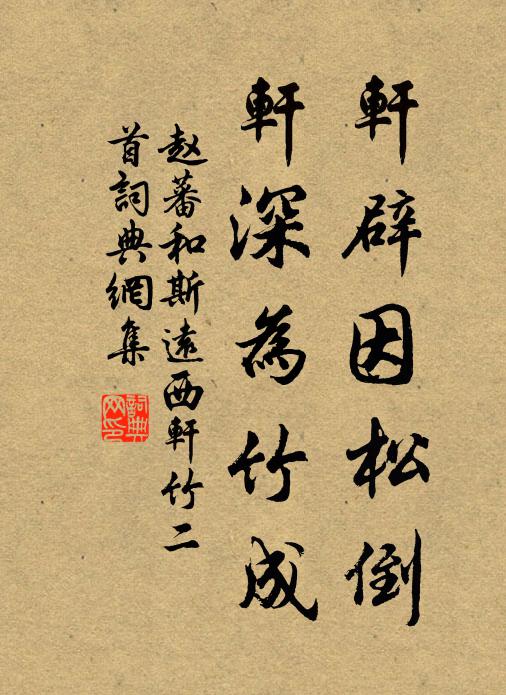 軒辟因松倒
軒深為竹成
赵蕃和斯遠西軒竹二
首詞典網集
詞典網印